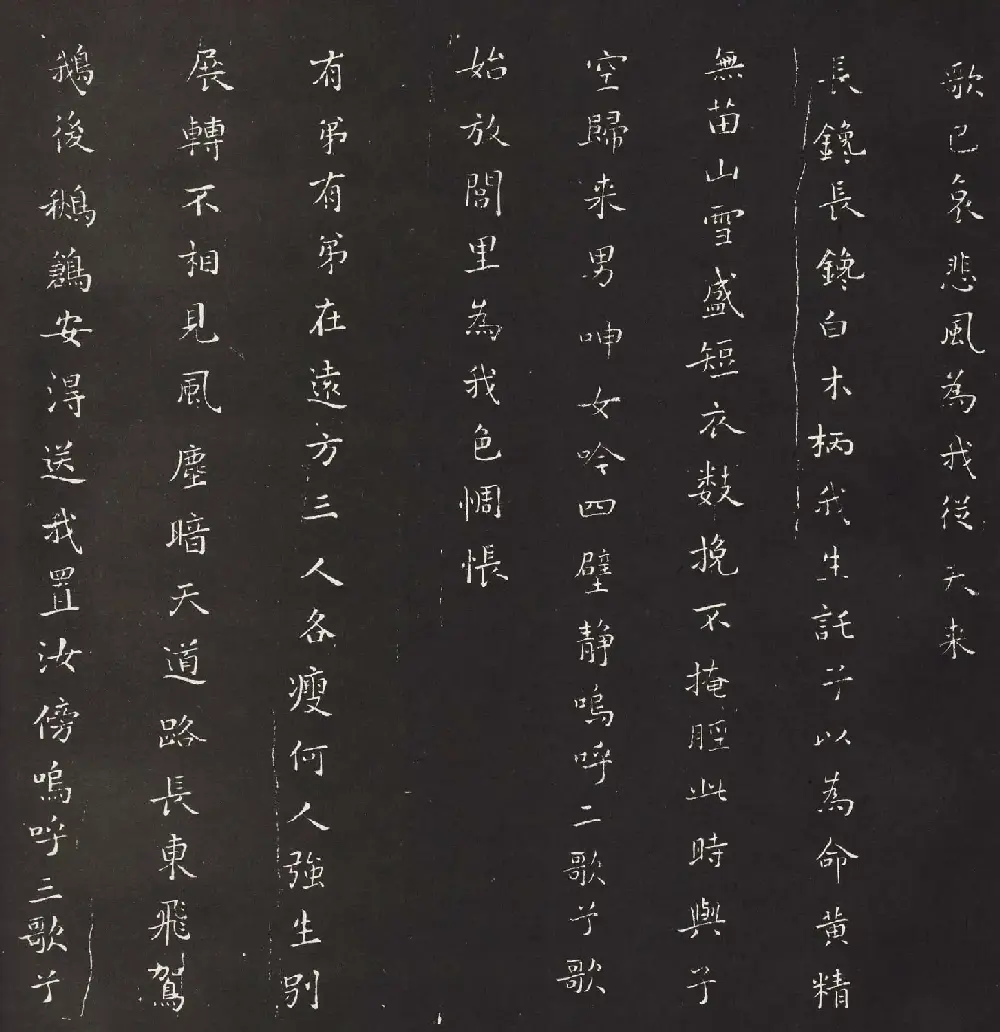 歌已哀悲風為我從天来
長鑱長鑱白木柄我生託子以為命黄精
無苗山雪盛短衣數挽不掩脛此時與子
空歸来男呻女吟四壁静嗚呼二歌兮歌
始放閭里為我色惆悵
有弟有弟在遠方三人各瘦何人強生别
展轉不相見風塵暗天道路長東飛鴐
鵝後鶖鶬安得送我置汝傍嗚呼三歌兮